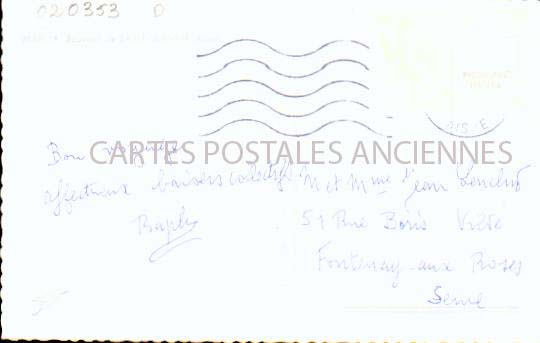 020353 D
CARTES POSTALES ANCIENNES
Bon voyage
affectueux baisers collectifs
M et Mme Jean
51 Rue Boris Vildé
Fontenay aux Roses
Seine